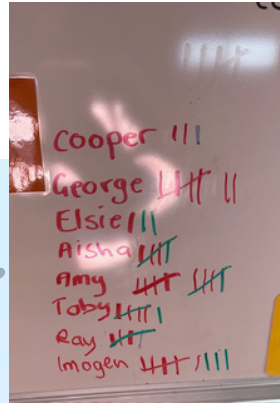 Cooper |||
George 卌 ||
Elsie |||
Aisha 卌
Amy 卌 卌
Toby 卌 |
Ray 卌
Imogen 卌 ||||